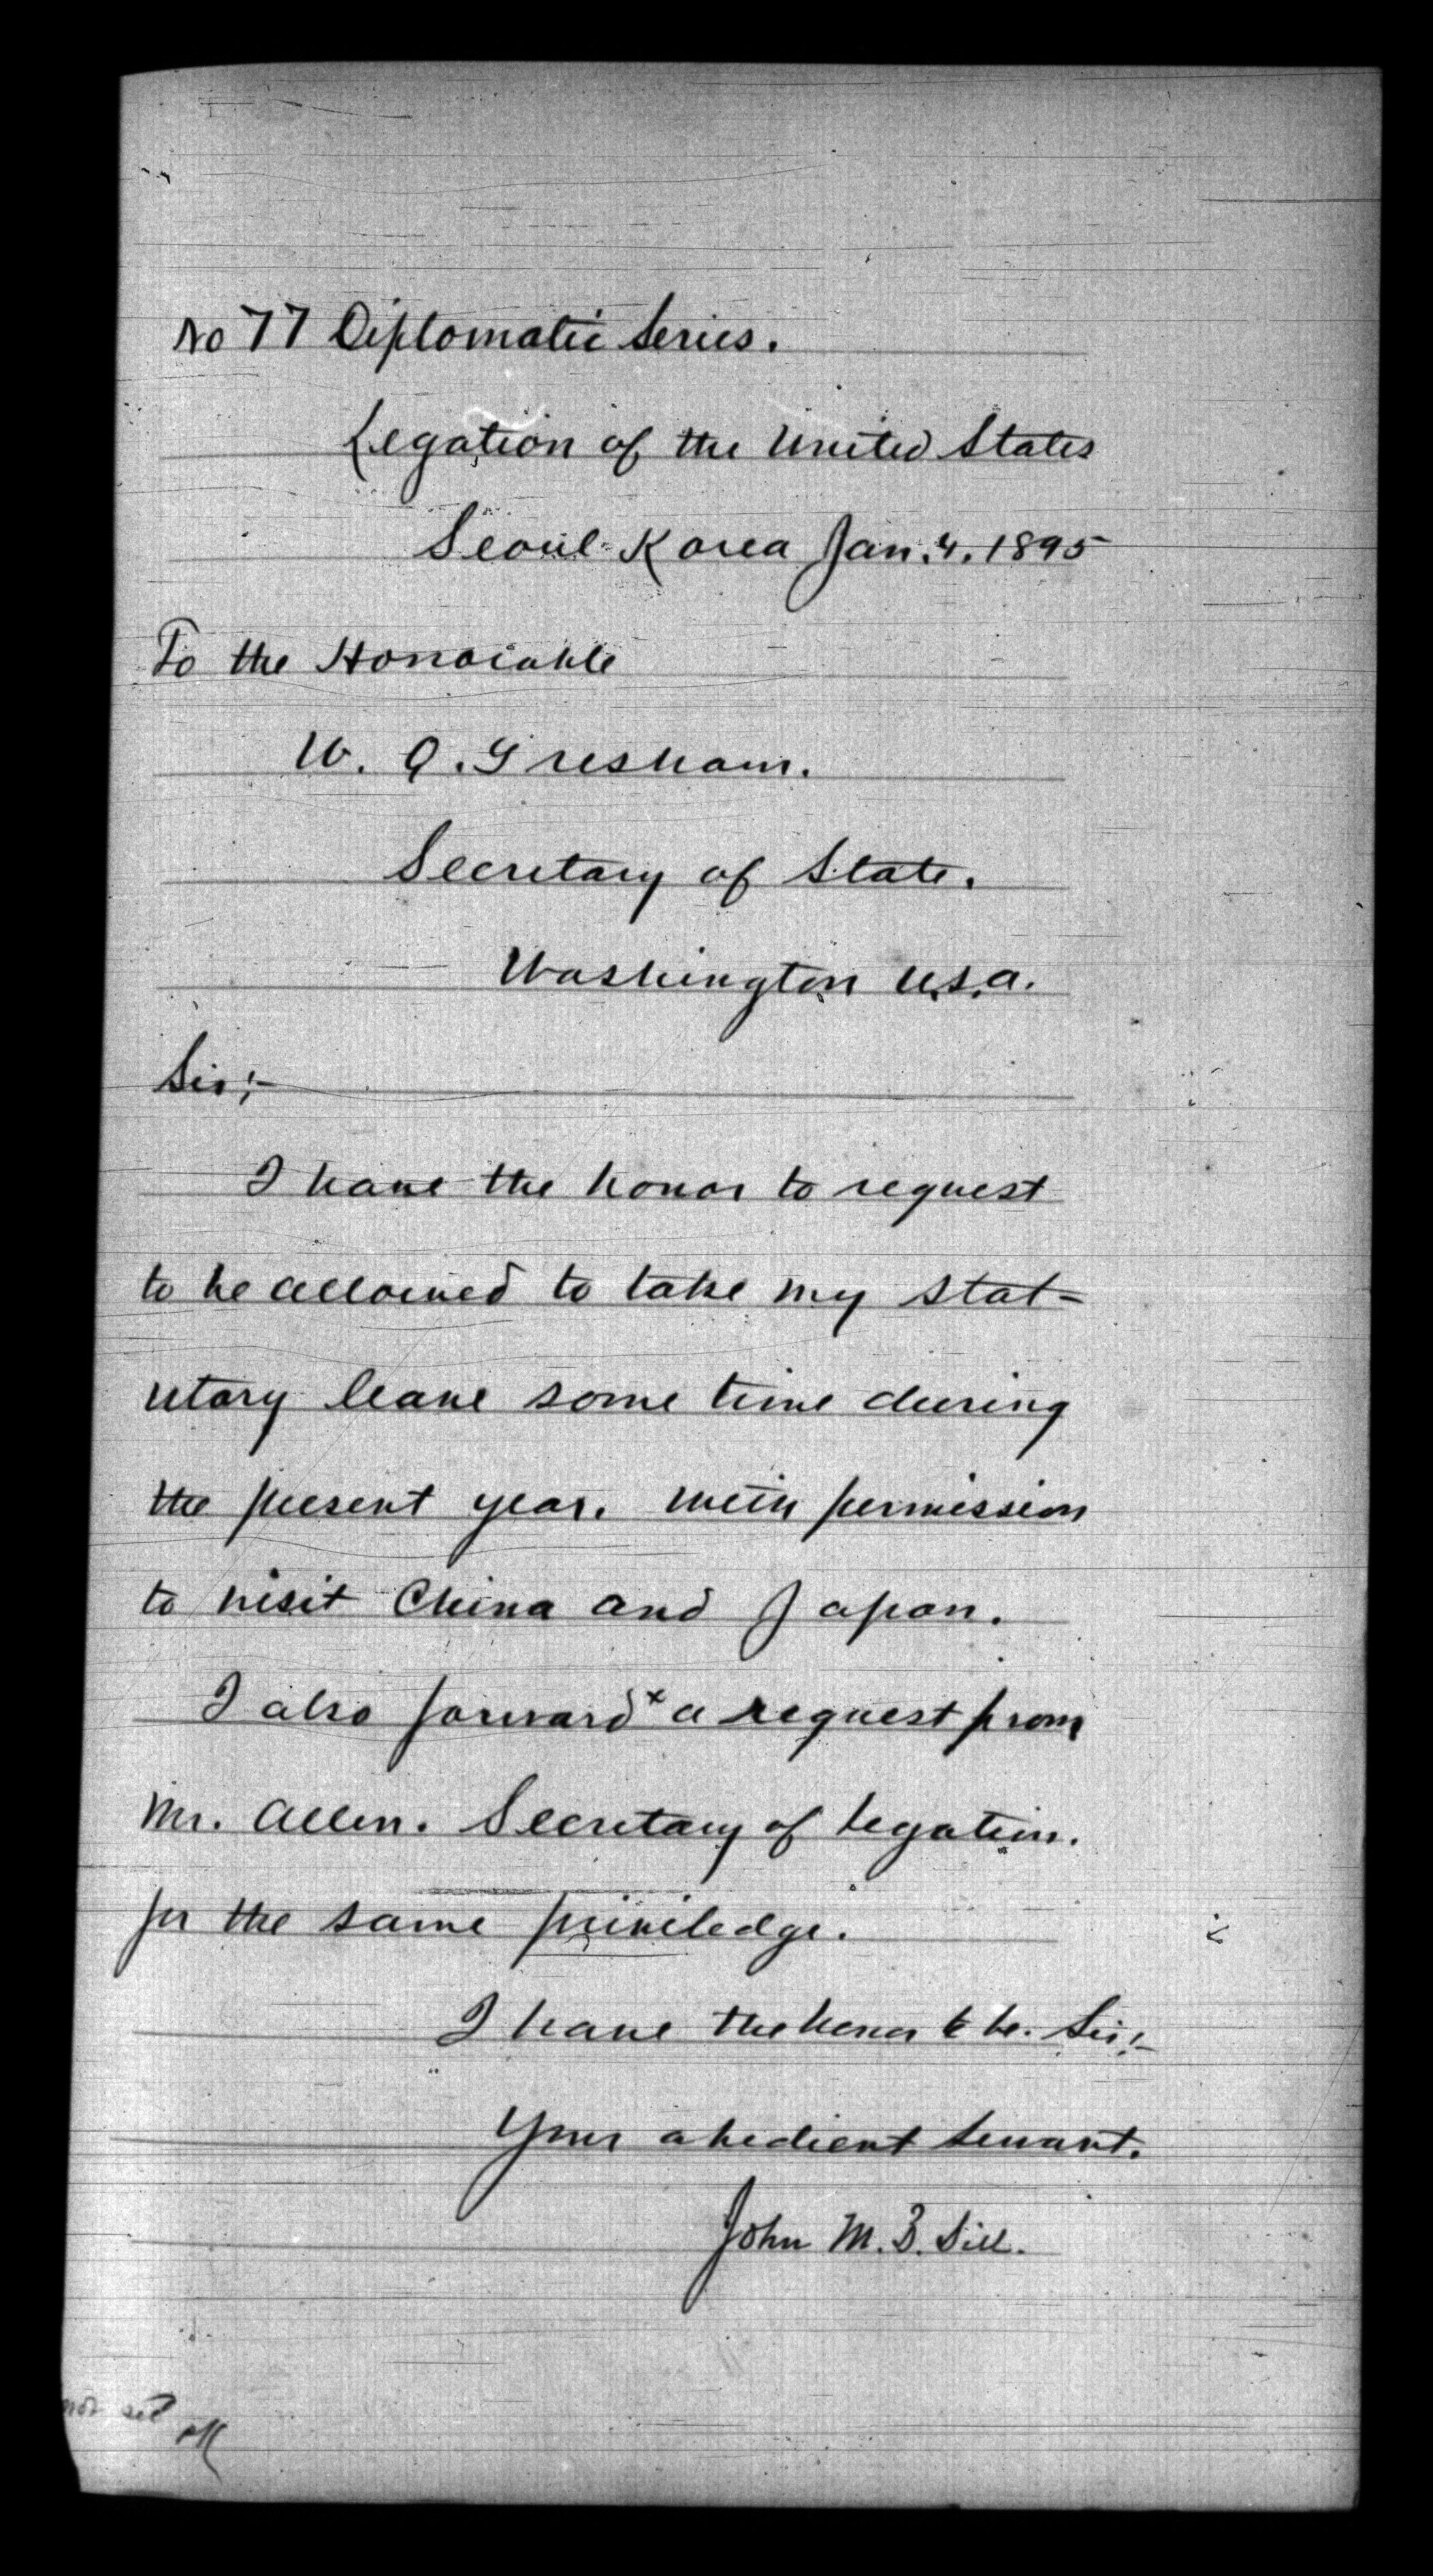 No 77 Diplomatic Series.
Legation of the United States
Seoul Korea Jan. 4. 1895
To the Honorable
W. Q. Gresham.
Secretary of State.
Washington U.S.A.
Sir;-
I have the honor to request
to be allowed to take my stat-
utary leave some time during
the present year. with permission
to visit China and Japan.
I also forward x a request from
Mr. Allen. Secretary of Legation.
for the same priviledge.
I have the honor to be. Sir;-
Your obedient servant.
John M. B. Sill.